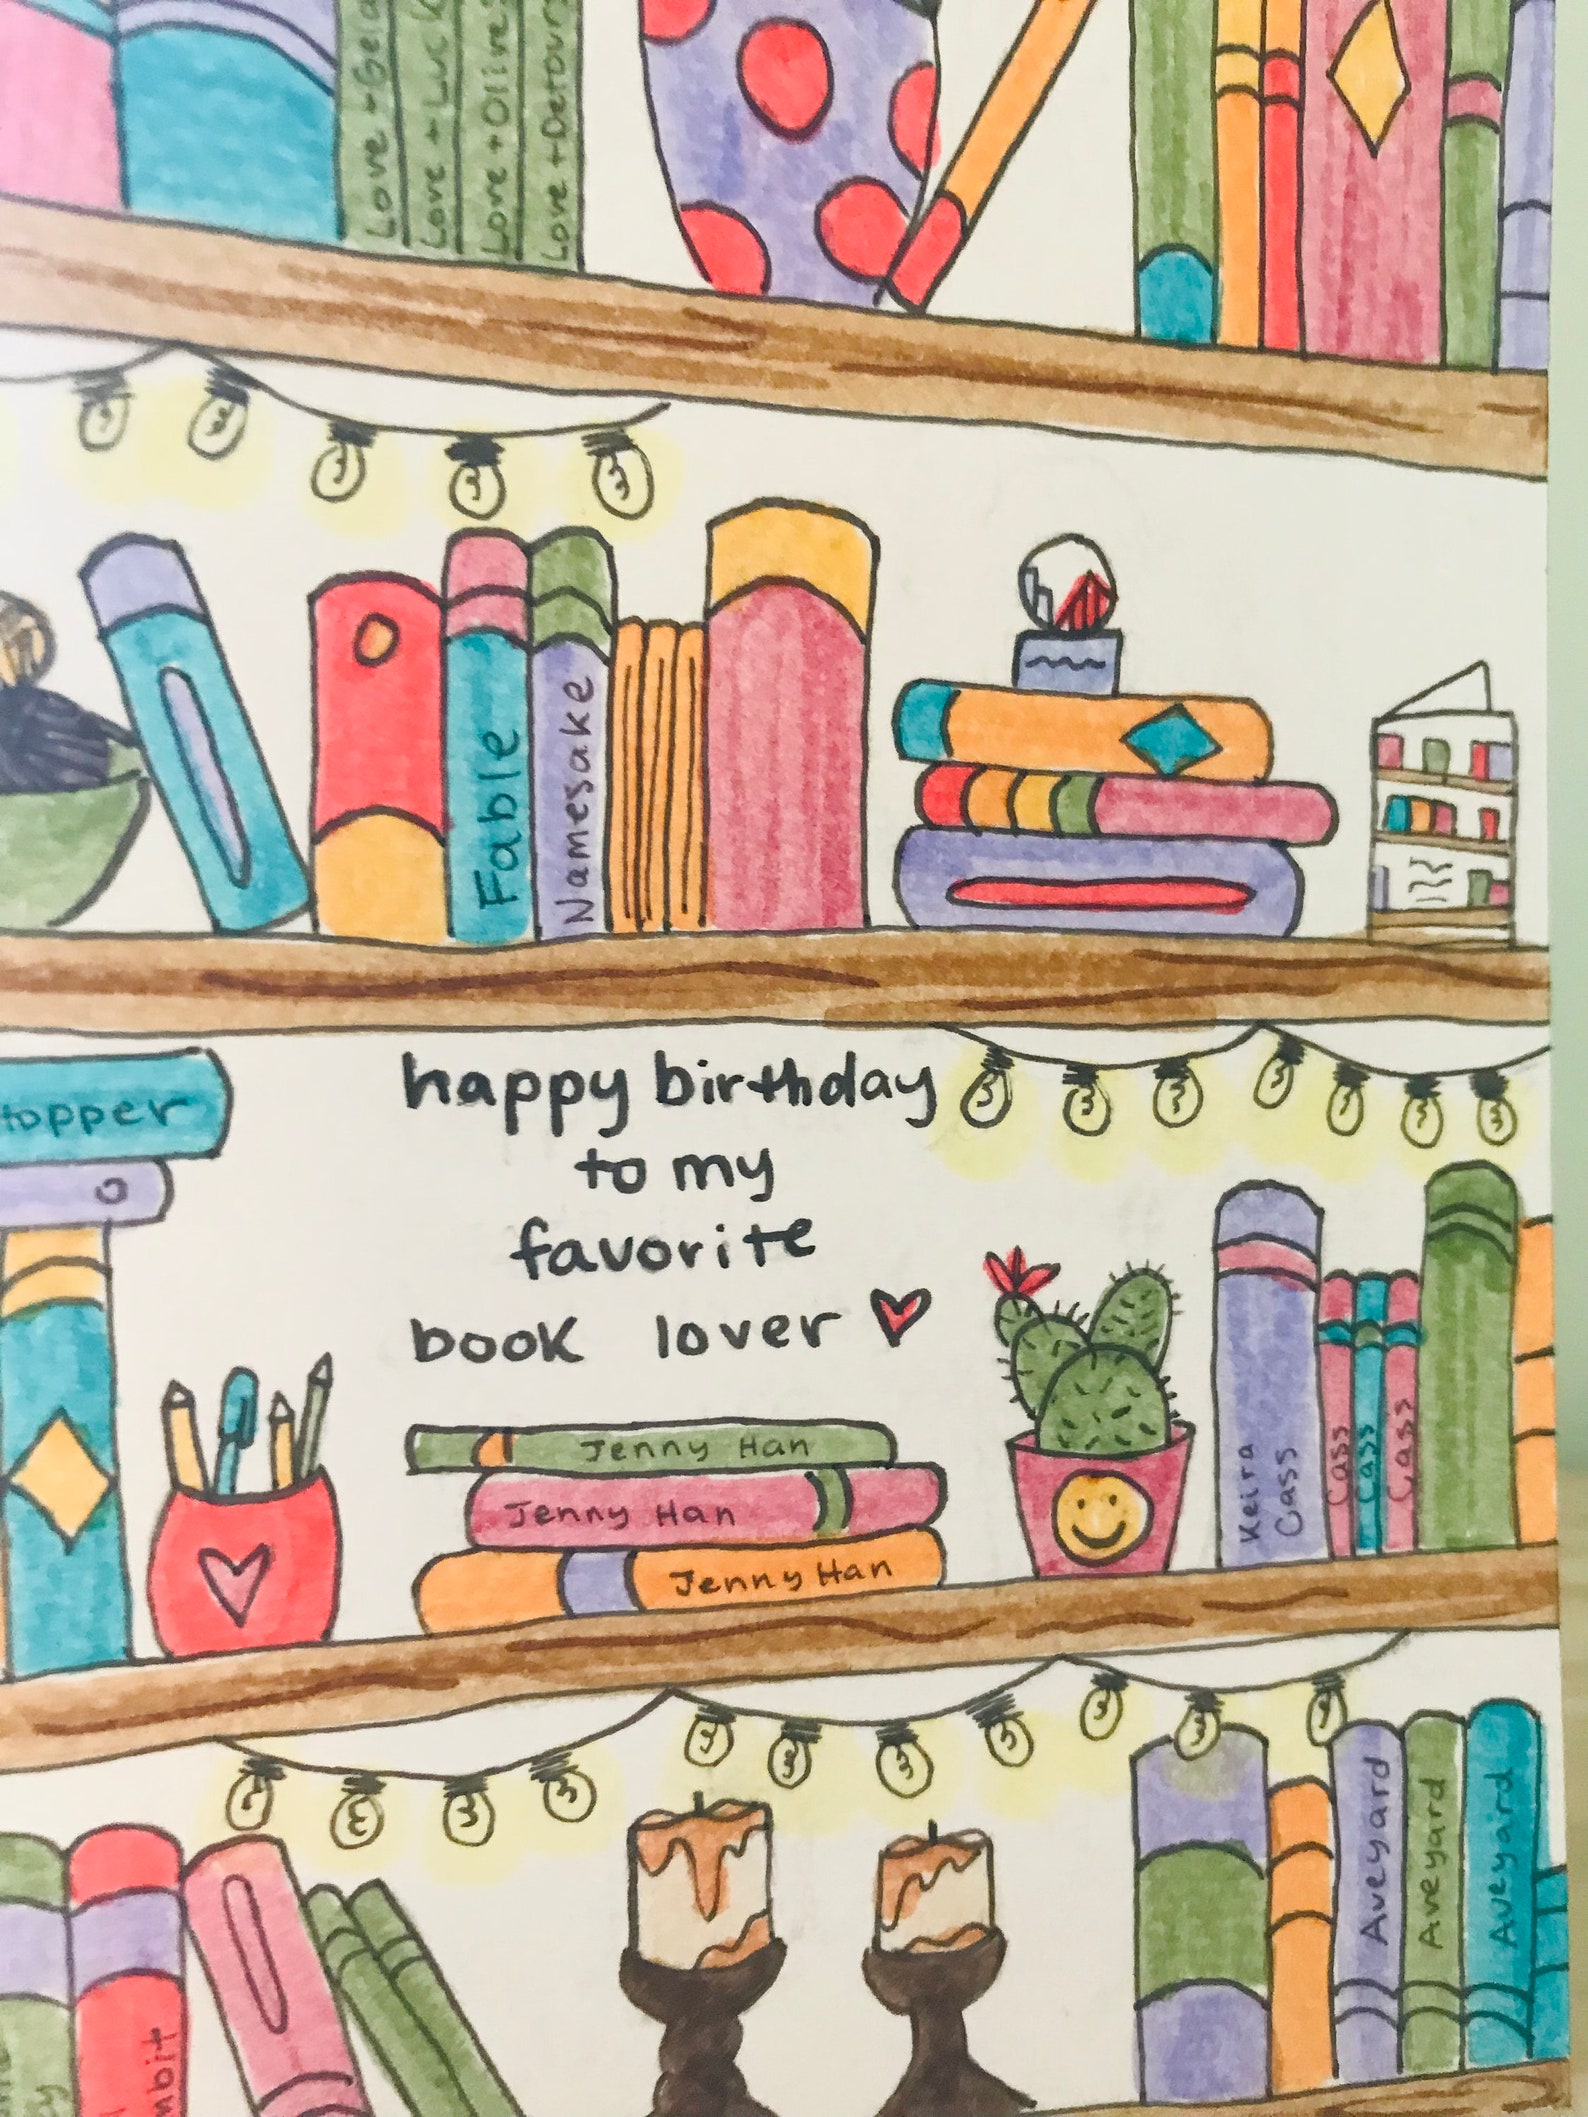 Love + Gela
Love + Luck
Love + Olives
Love + Detours
Fable
Namesake
topper
happy birthday
to my
favorite
book lover
Jenny Han
Jenny Han
Jenny Han
Keira
Cass
Cass
Cass
Cass
Aveyard
Aveyard
Aveyard
mbit